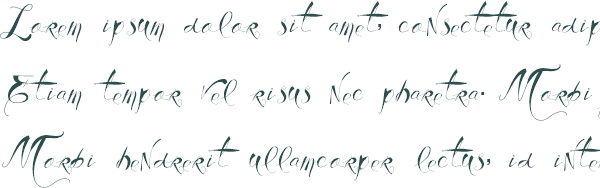 Lorem ipsum dolor sit amet, consectetur adip
Etiam tempor vel risus nec pharetra. Morbi
Morbi hendrerit ullamcorper lectus, id inte